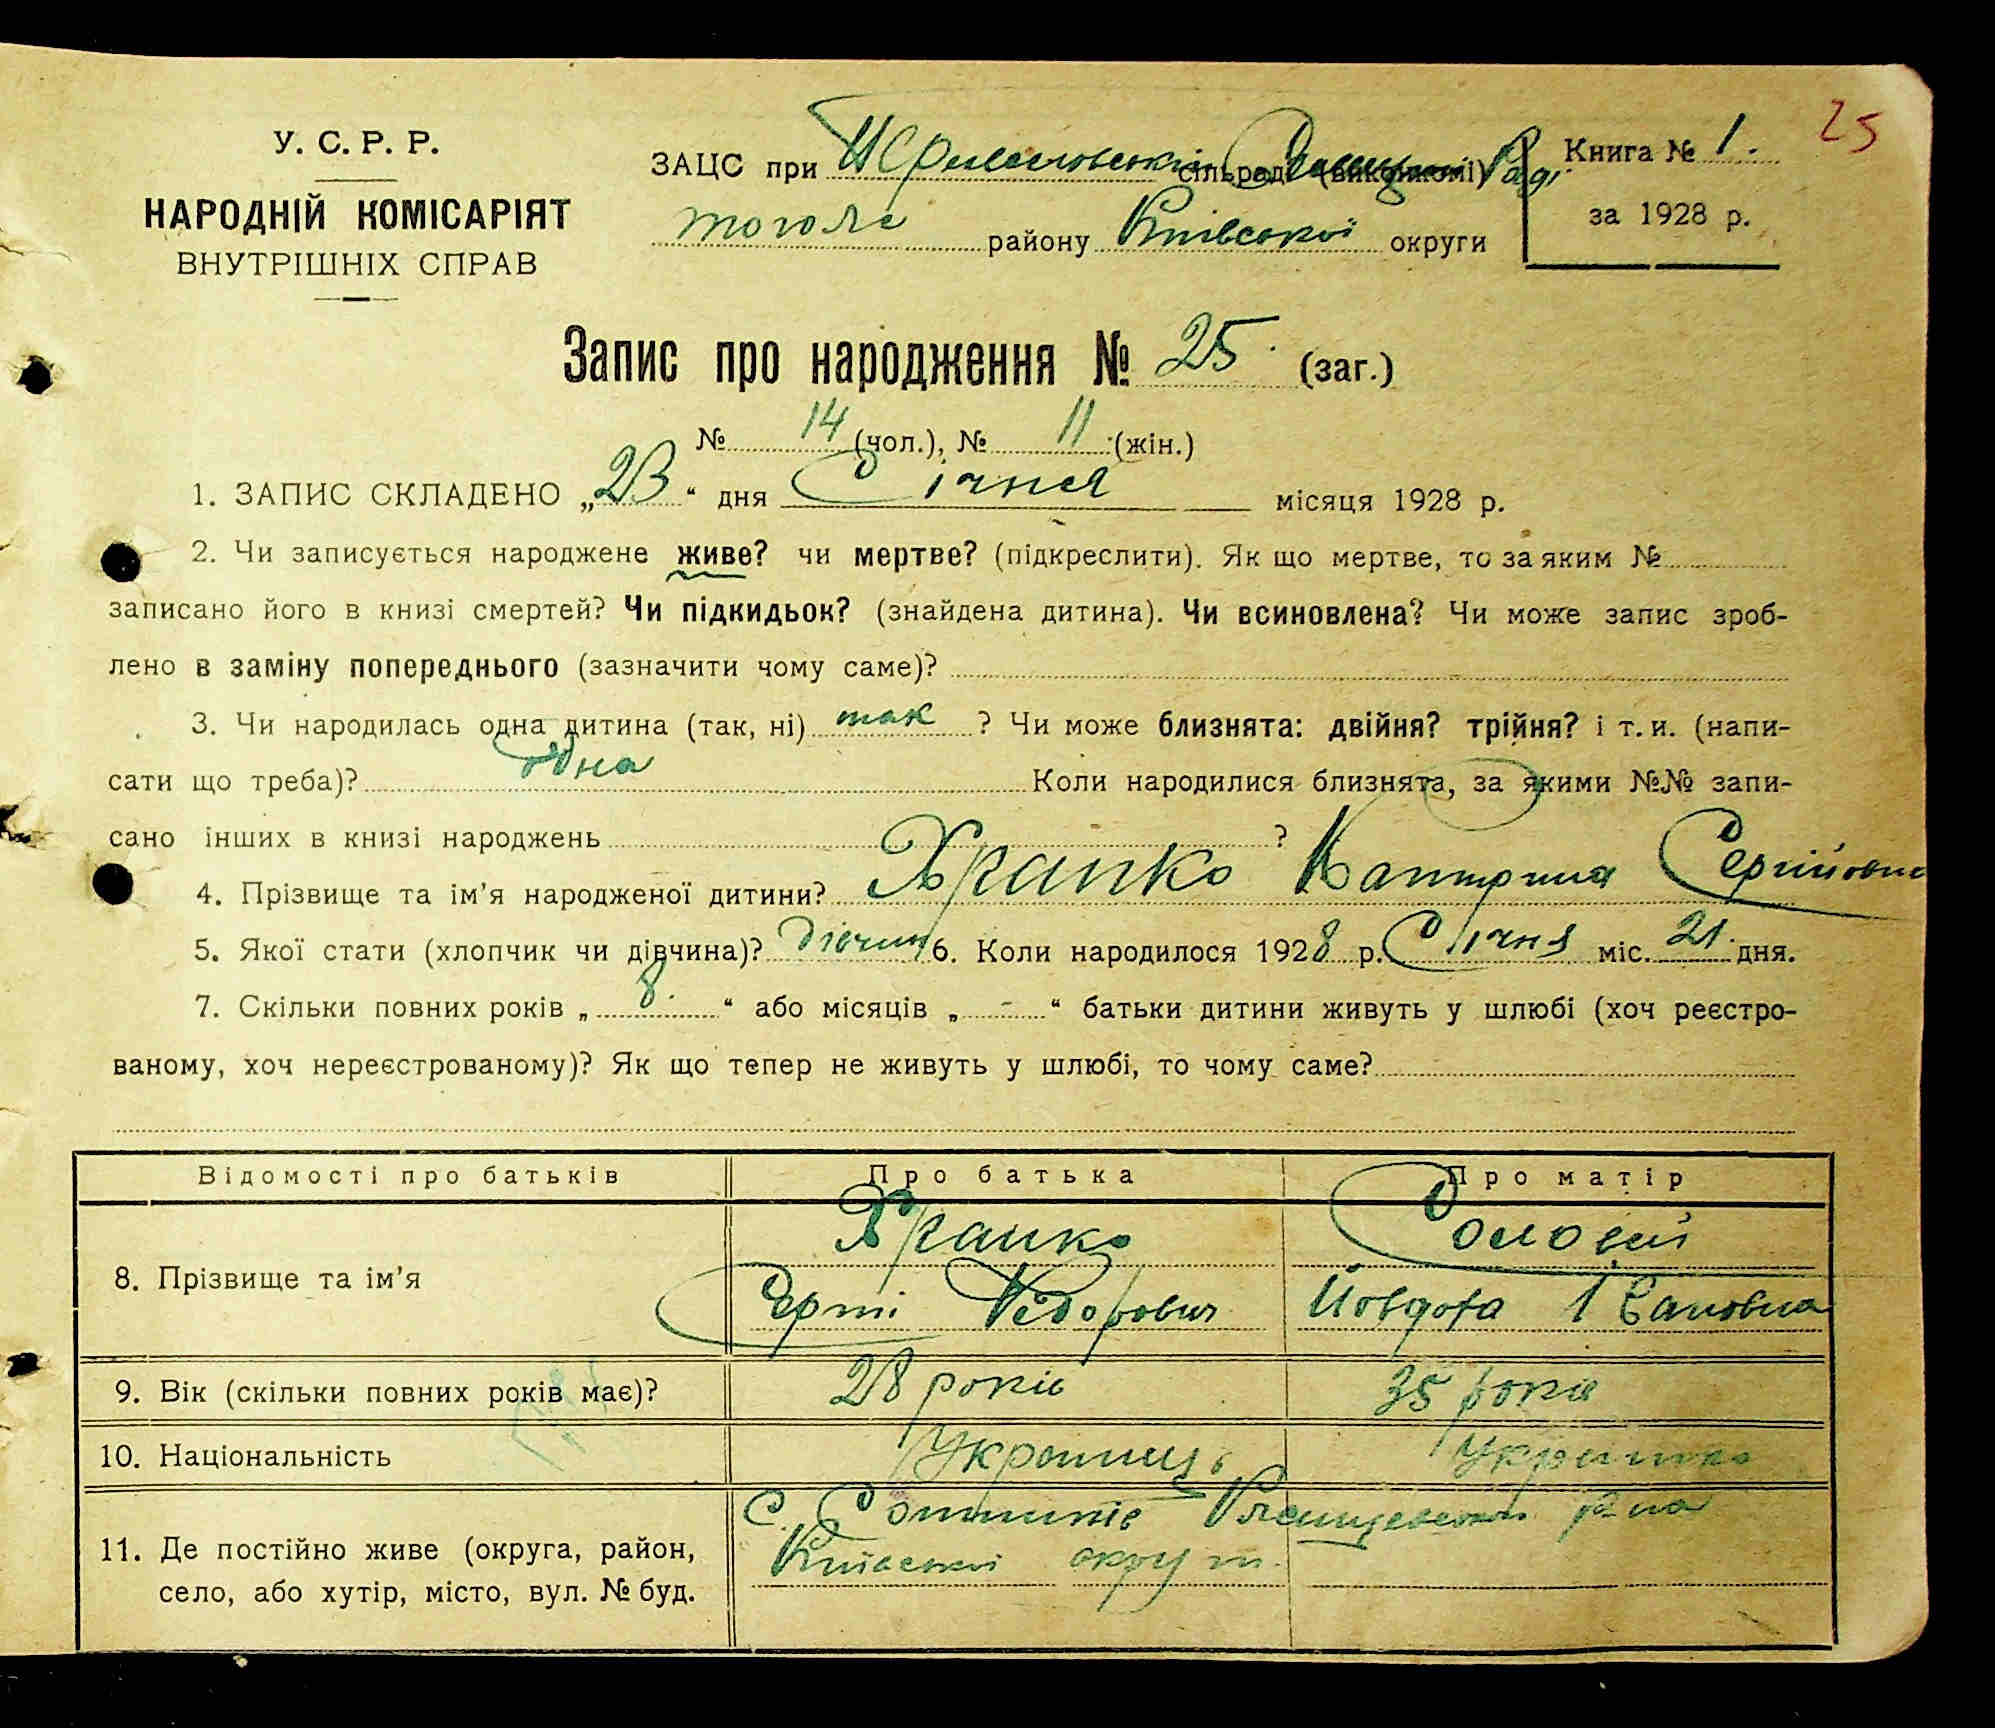 25
У. С. Р. Р.
НАРОДНІЙ КОМІСАРІЯТ
ВНУТРІШНІХ СПРАВ
ЗАЦС при сільраді (виконкомі) Раді
тогож району Київської округи
Книга № 1.
за 1928 р.
Запис про народження № 25. (заг.)
№ 14 (чол.), № 11 (жін.)
1. ЗАПИС СКЛАДЕНО „23“ дня Січня місяця 1928 р.
2. Чи записується народжене живе? чи мертве? (підкреслити). Як що мертве, то за яким №
записано його в книзі смертей? Чи підкидьок? (знайдена дитина). Чи всиновлена? Чи може запис зроб-
лено в заміну попереднього (зазначити чому саме)?
3. Чи народилась одна дитина (так, ні) так ? Чи може близнята: двійня? трійня? і т. и. (напи-
сати що треба)? одна Коли народилися близнята, за якими №№ запи-
сано інших в книзі народжень ?
4. Прізвище та ім’я народженої дитини? Храпко Катерина Сергіївна
5. Якої стати (хлопчик чи дівчина)? дівчина 6. Коли народилося 1928 р. Січня міс. 21. дня.
7. Скільки повних років „ 8. “ або місяців „ - “ батьки дитини живуть у шлюбі (хоч реєстро-
ваному, хоч нереєстрованому)? Як що тепер не живуть у шлюбі, то чому саме?
Відомості про батьків Про батька Про матір
8. Прізвище та ім’я Храпко Соловей
Сергій Федорович Йовдоха Івановна
9. Вік (скільки повних років має)? 28 років 35 років
10. Національність Українець Українка
11. Де постійно живе (округа, район,
село, або хутір, місто, вул. № буд.
с. р-на
Київської округи.